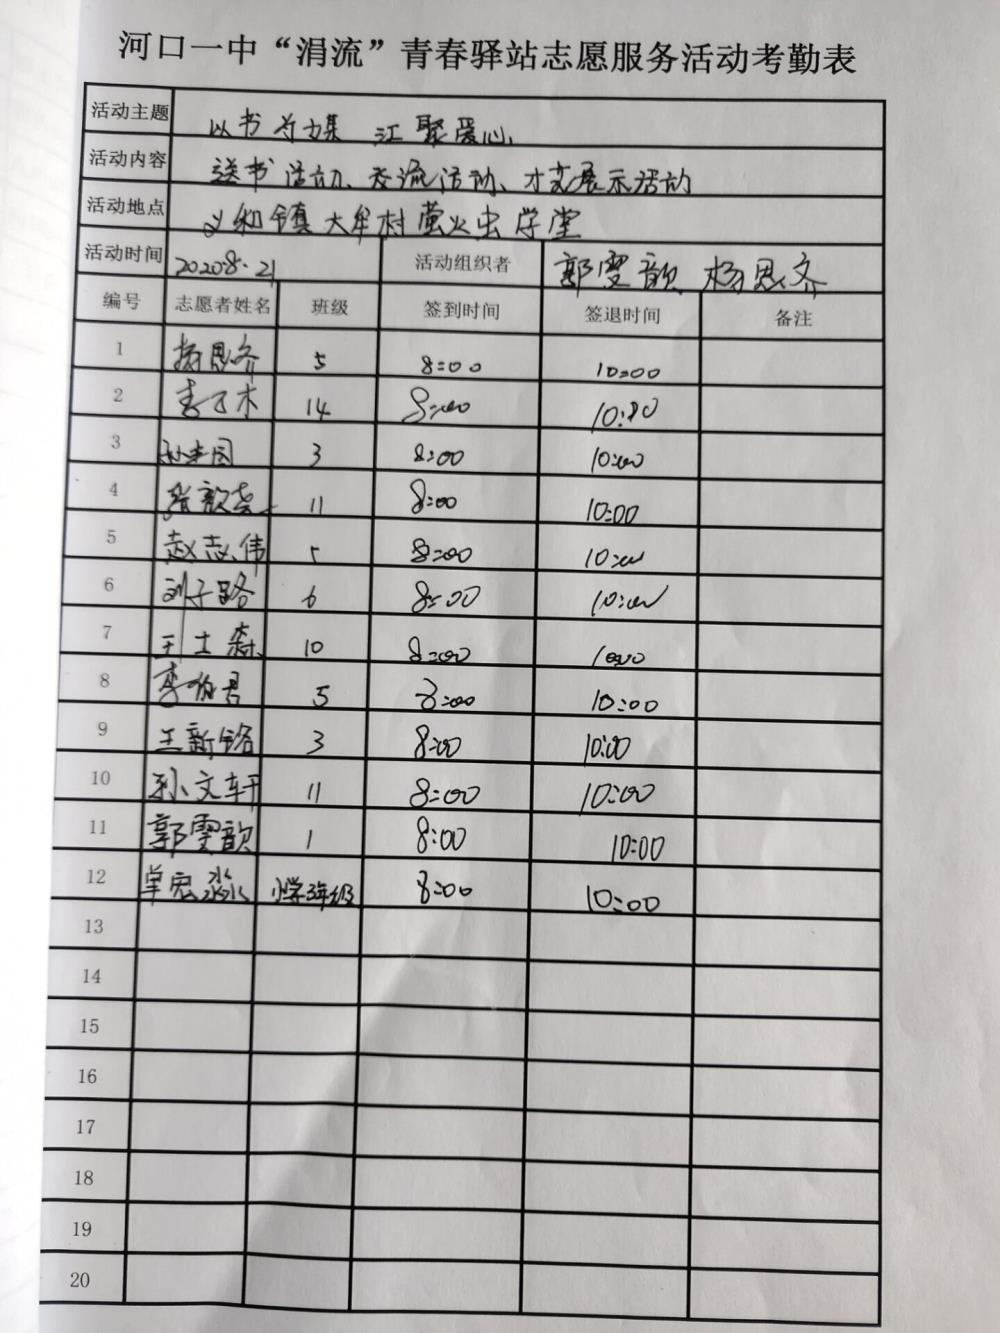 河口一中“涓流”青春驿站志愿服务活动考勤表
活动主题 以书为媒 汇聚爱心
活动内容 送书活动、交流活动、才艺展示活动
活动地点 义和镇大牟村萤火虫学堂
活动时间 2020 8.21 活动组织者 郭雯歆 杨思齐
编号 志愿者姓名 班级 签到时间 签退时间 备注
1 杨思齐 5 8:00 10:00
2 14 8:00 10:00
3 3 8:00 10:00
4 张歆尧 11 8:00 10:00
5 赵志伟 5 8:00 10:00
6 刘子路 6 8:00 10:00
7 王士森 10 8:00 10:00
8 5 8:00 10:00
9 王新铭 3 8:00 10:00
10 孙文轩 11 8:00 10:00
11 郭雯歆 1 8:00 10:00
12 单宏淼 小学3年级 8:00 10:00
13
14
15
16
17
18
19
20